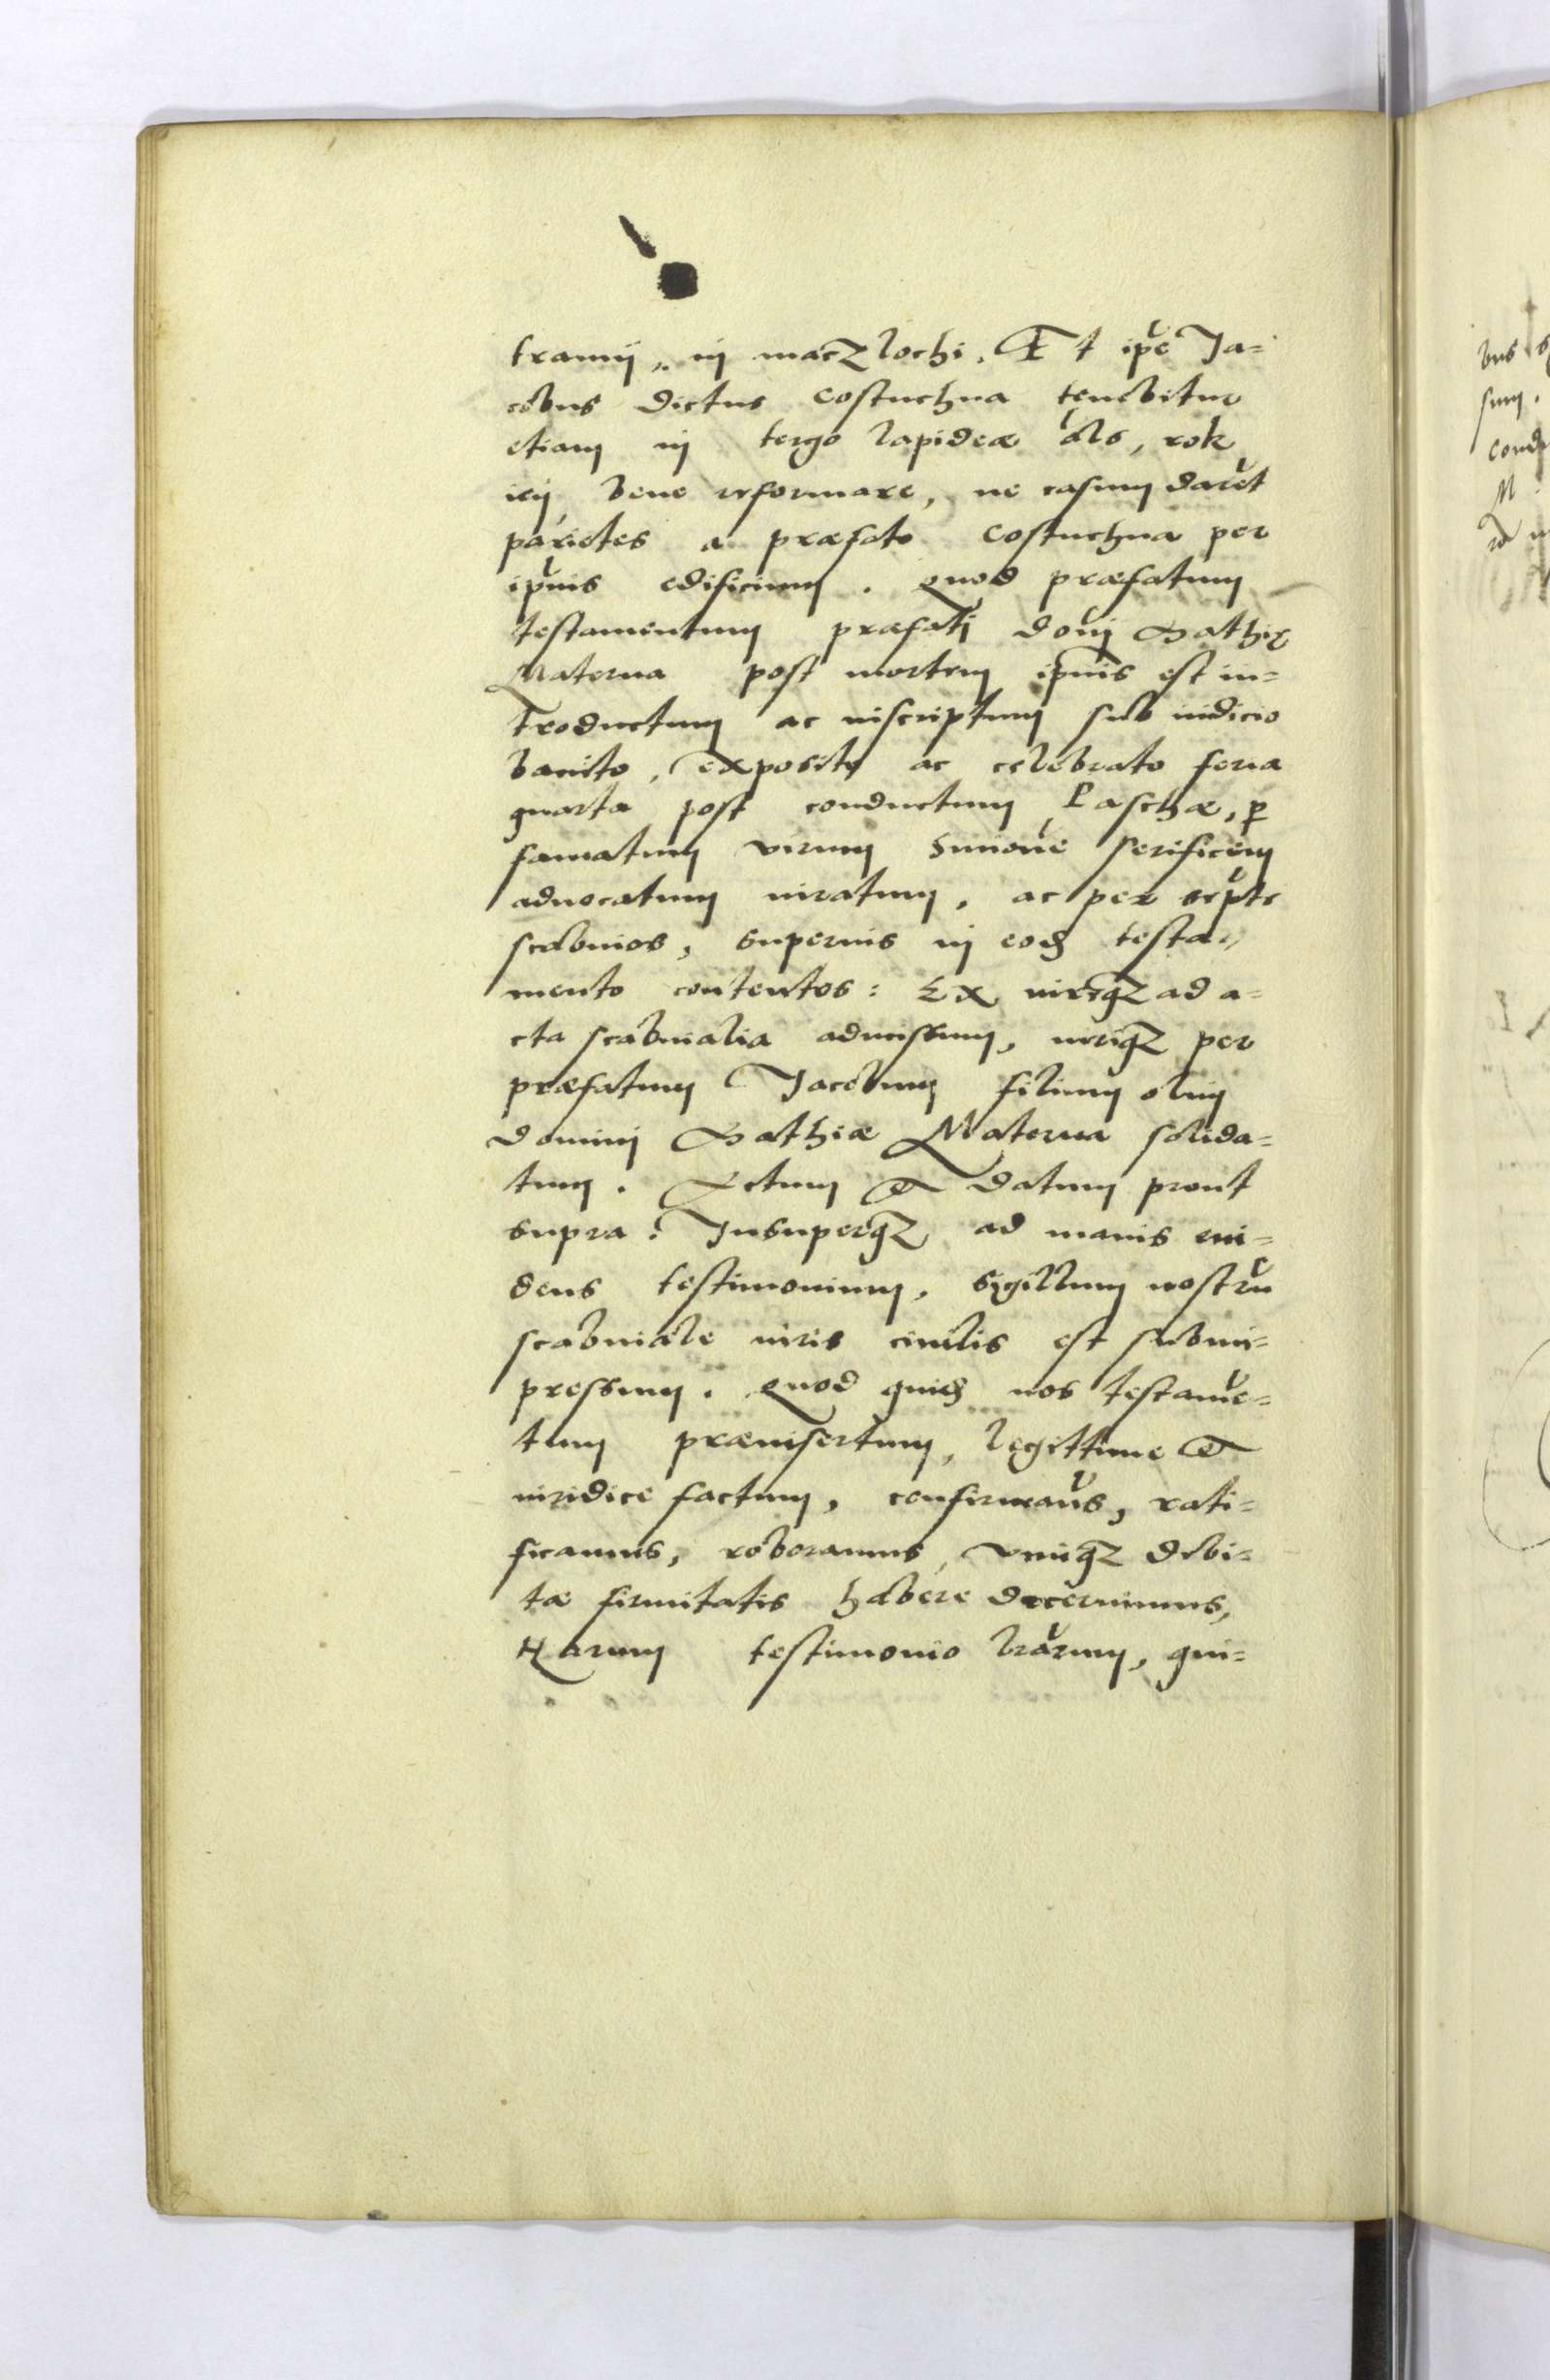 tramij, in maczlochi. Et ip̃e Ja=
cobus dictus Costuchna tenebitur
etiam in tergo lapideæ als, rok
icij, bene reformare, ne casum daret
parietes a præfato Costuchna per
ipũis edificium. Quod præfatum
testamentum præfati domĩ Mathiæ
Materna post mortem ipũis est in=
troductum ac inscriptum sub iudicio
banito, exposito ac celebrato feria
quarta post conductum Paschæ, p̱
famatum virum Simonẽ serificem
aduocatum iuratum, ac per scp̃te
scabinos, superius in eodẽ testa=
mento contentos: Ex iureqꝫ ad a=
cta scabinalia admissum, iuriqꝫ per
præfatum Jacobum filium olim
domini Mathiæ Materna solida=
tum. Actum et datum prout
supra. Insuperqꝫ ad maius eui=
dens testimonium, sigillum nostrũ
scabinale iuris ciuilis est subim=
pressum. Quod quidẽ nos testamẽ=
tum præinsertum, legittime et
iuridice factum, confirmamũs, rati=
ficamus, roboramus, vimqꝫ debi=
tæ firmitatis habere decernimus,
Harum testimonio lrãrum, qui=